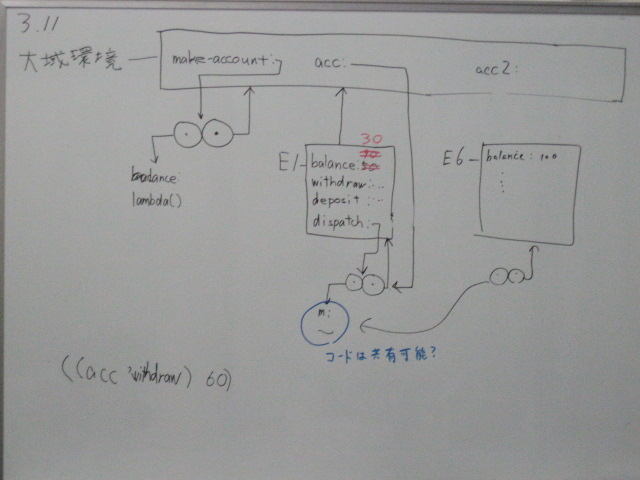 3.11
大域環境
make-account:
acc:
acc2:
balance:
lambda()
30
E1
balance:
withdraw:...
deposit:...
dispatch:
E6
balance: 100
m:
コードは共有可能?
((acc 'withdraw) 60)